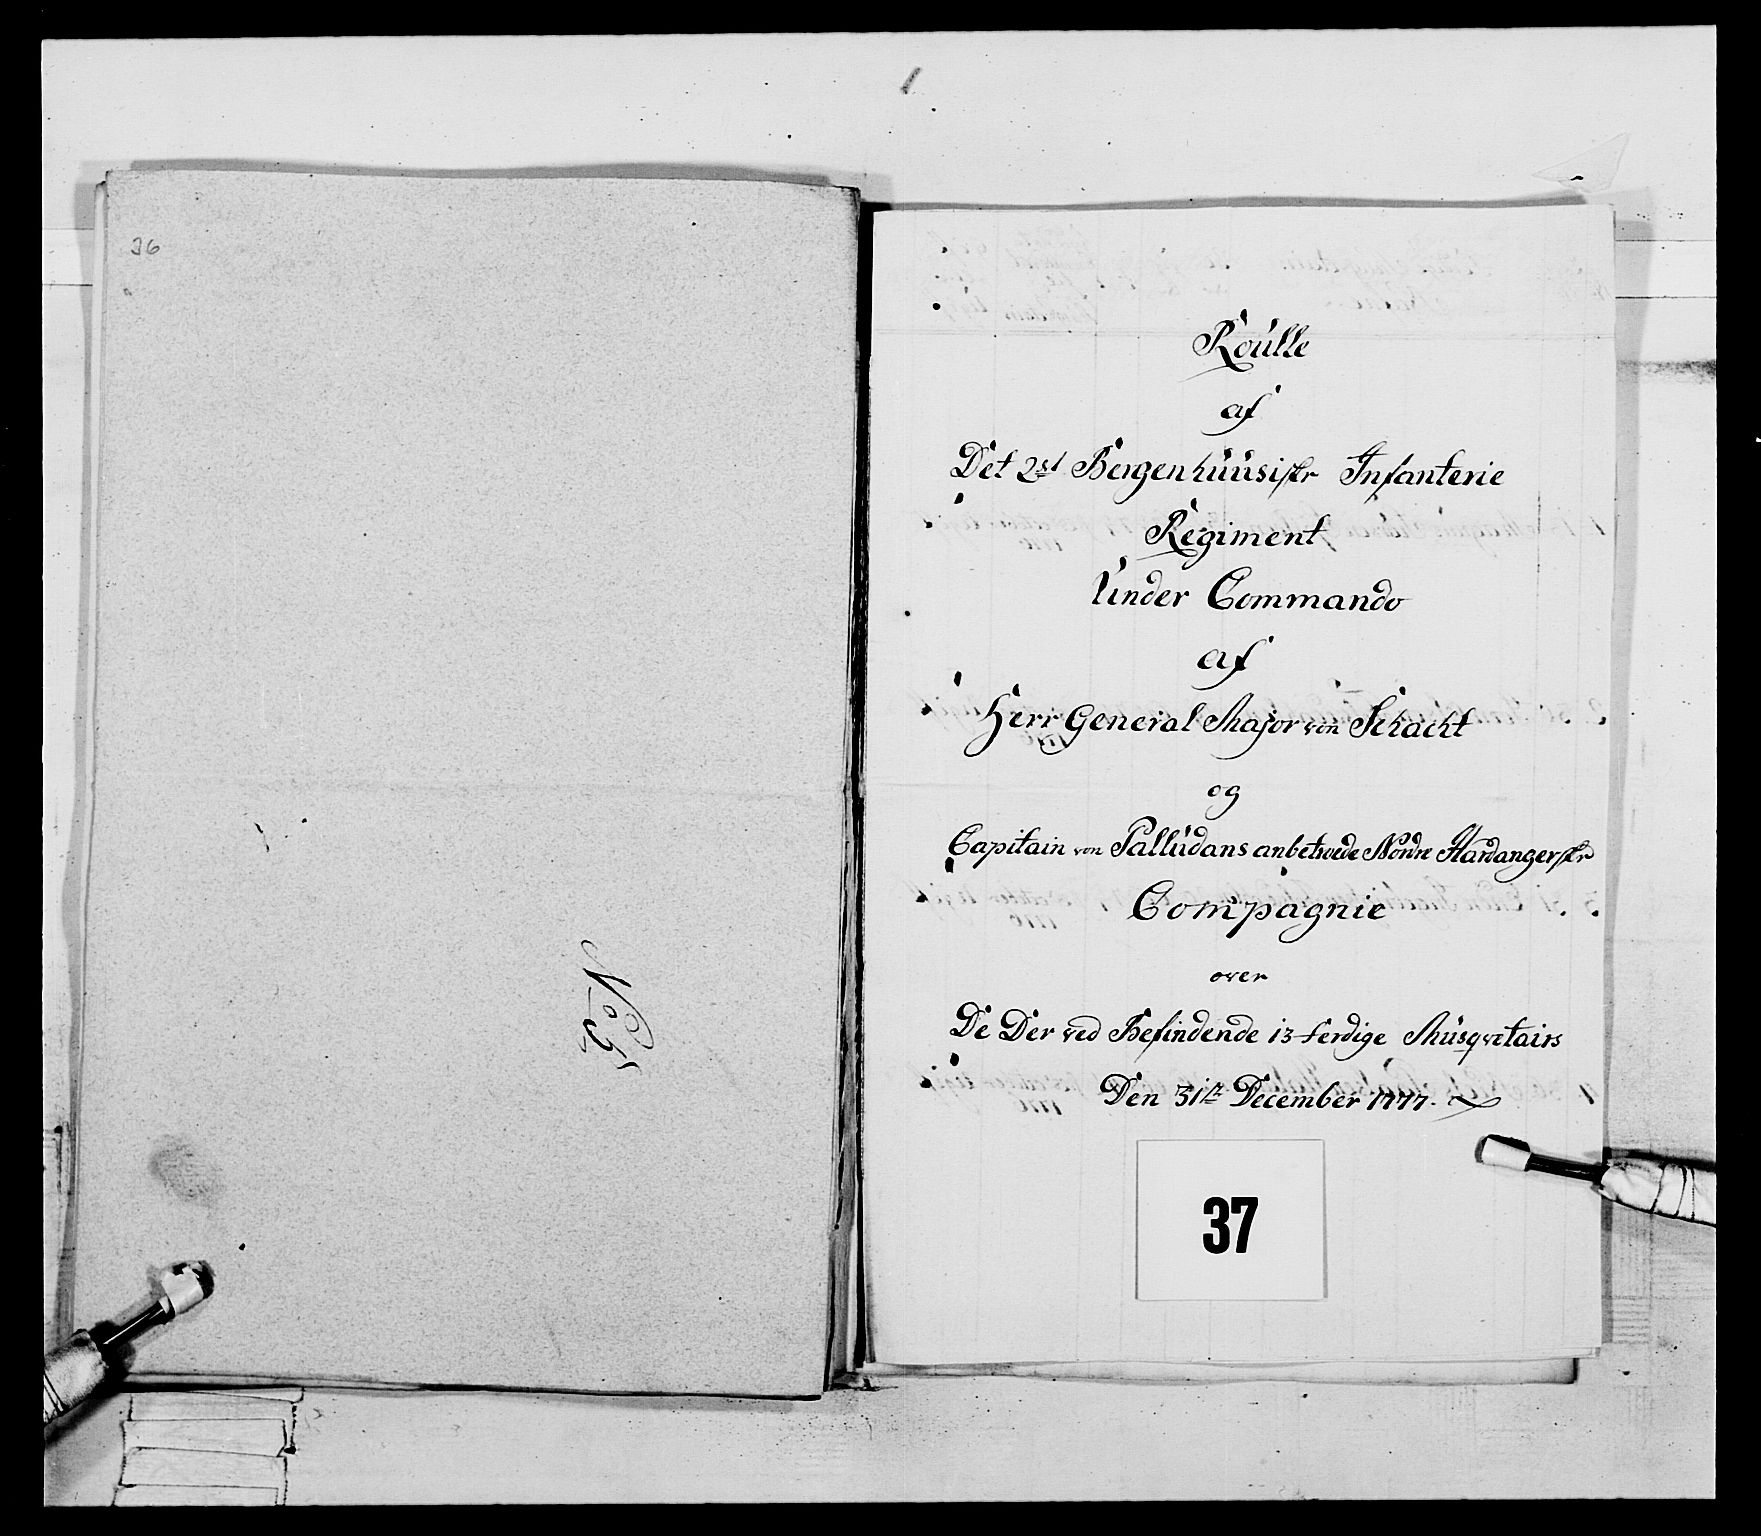 36
No 5
Roulle
af
Det 2det Bergenhuusiske Infanterie
Regiment
Under Commando
af
Herr General Major von Schacht
og
Capitain von Palludans anbetroede Nordre Hardangerske
Compagnie
over
De Der ved Befindende 13 ferdige Musqvetairs
Den 31te December 1777.
37